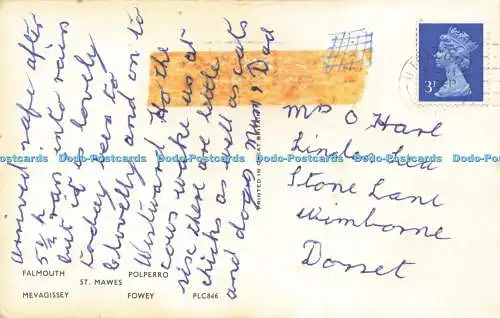 arrived safe after
5½ h ran into rain
but it is lovely
today been to
Clovelly and on to
Westward Ho the
cows wake us at
rise there are little
chicks as well as cats
and dogs Mum & Dad
FALMOUTH POLPERRO
ST. MAWES
MEVAGISSEY FOWEY PLC846
PRINTED IN GREAT BRITAIN
3P
Mrs O Hart
Stone Lane
Wimborne
Dorset
Dodo-Postcards Dodo-Postcards Dodo-Postcards Dodo-Postcards Dodo-Postcards Dodo-Postcards